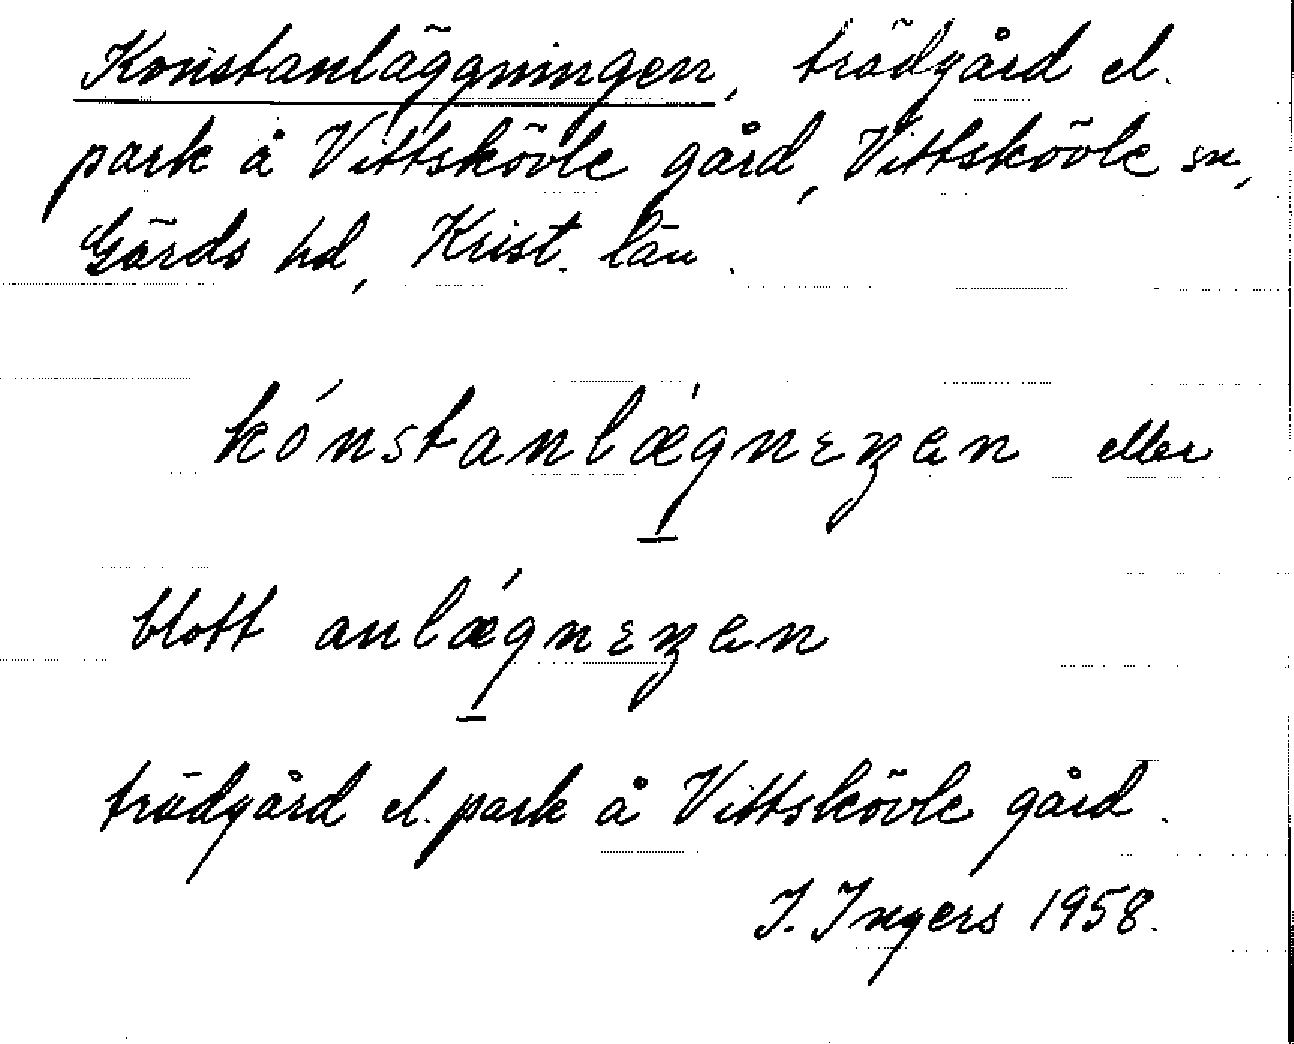 Konstanläggningen, trädgård el.
park å Vittskövle gård, Vittskövle sn,
Gärds hd, Krist. län.
kónstanlǽgnɛŋen eller
blott anlǽgnɛŋen
trädgård el. park å Vittskövle gård.
I. Ingers 1958.